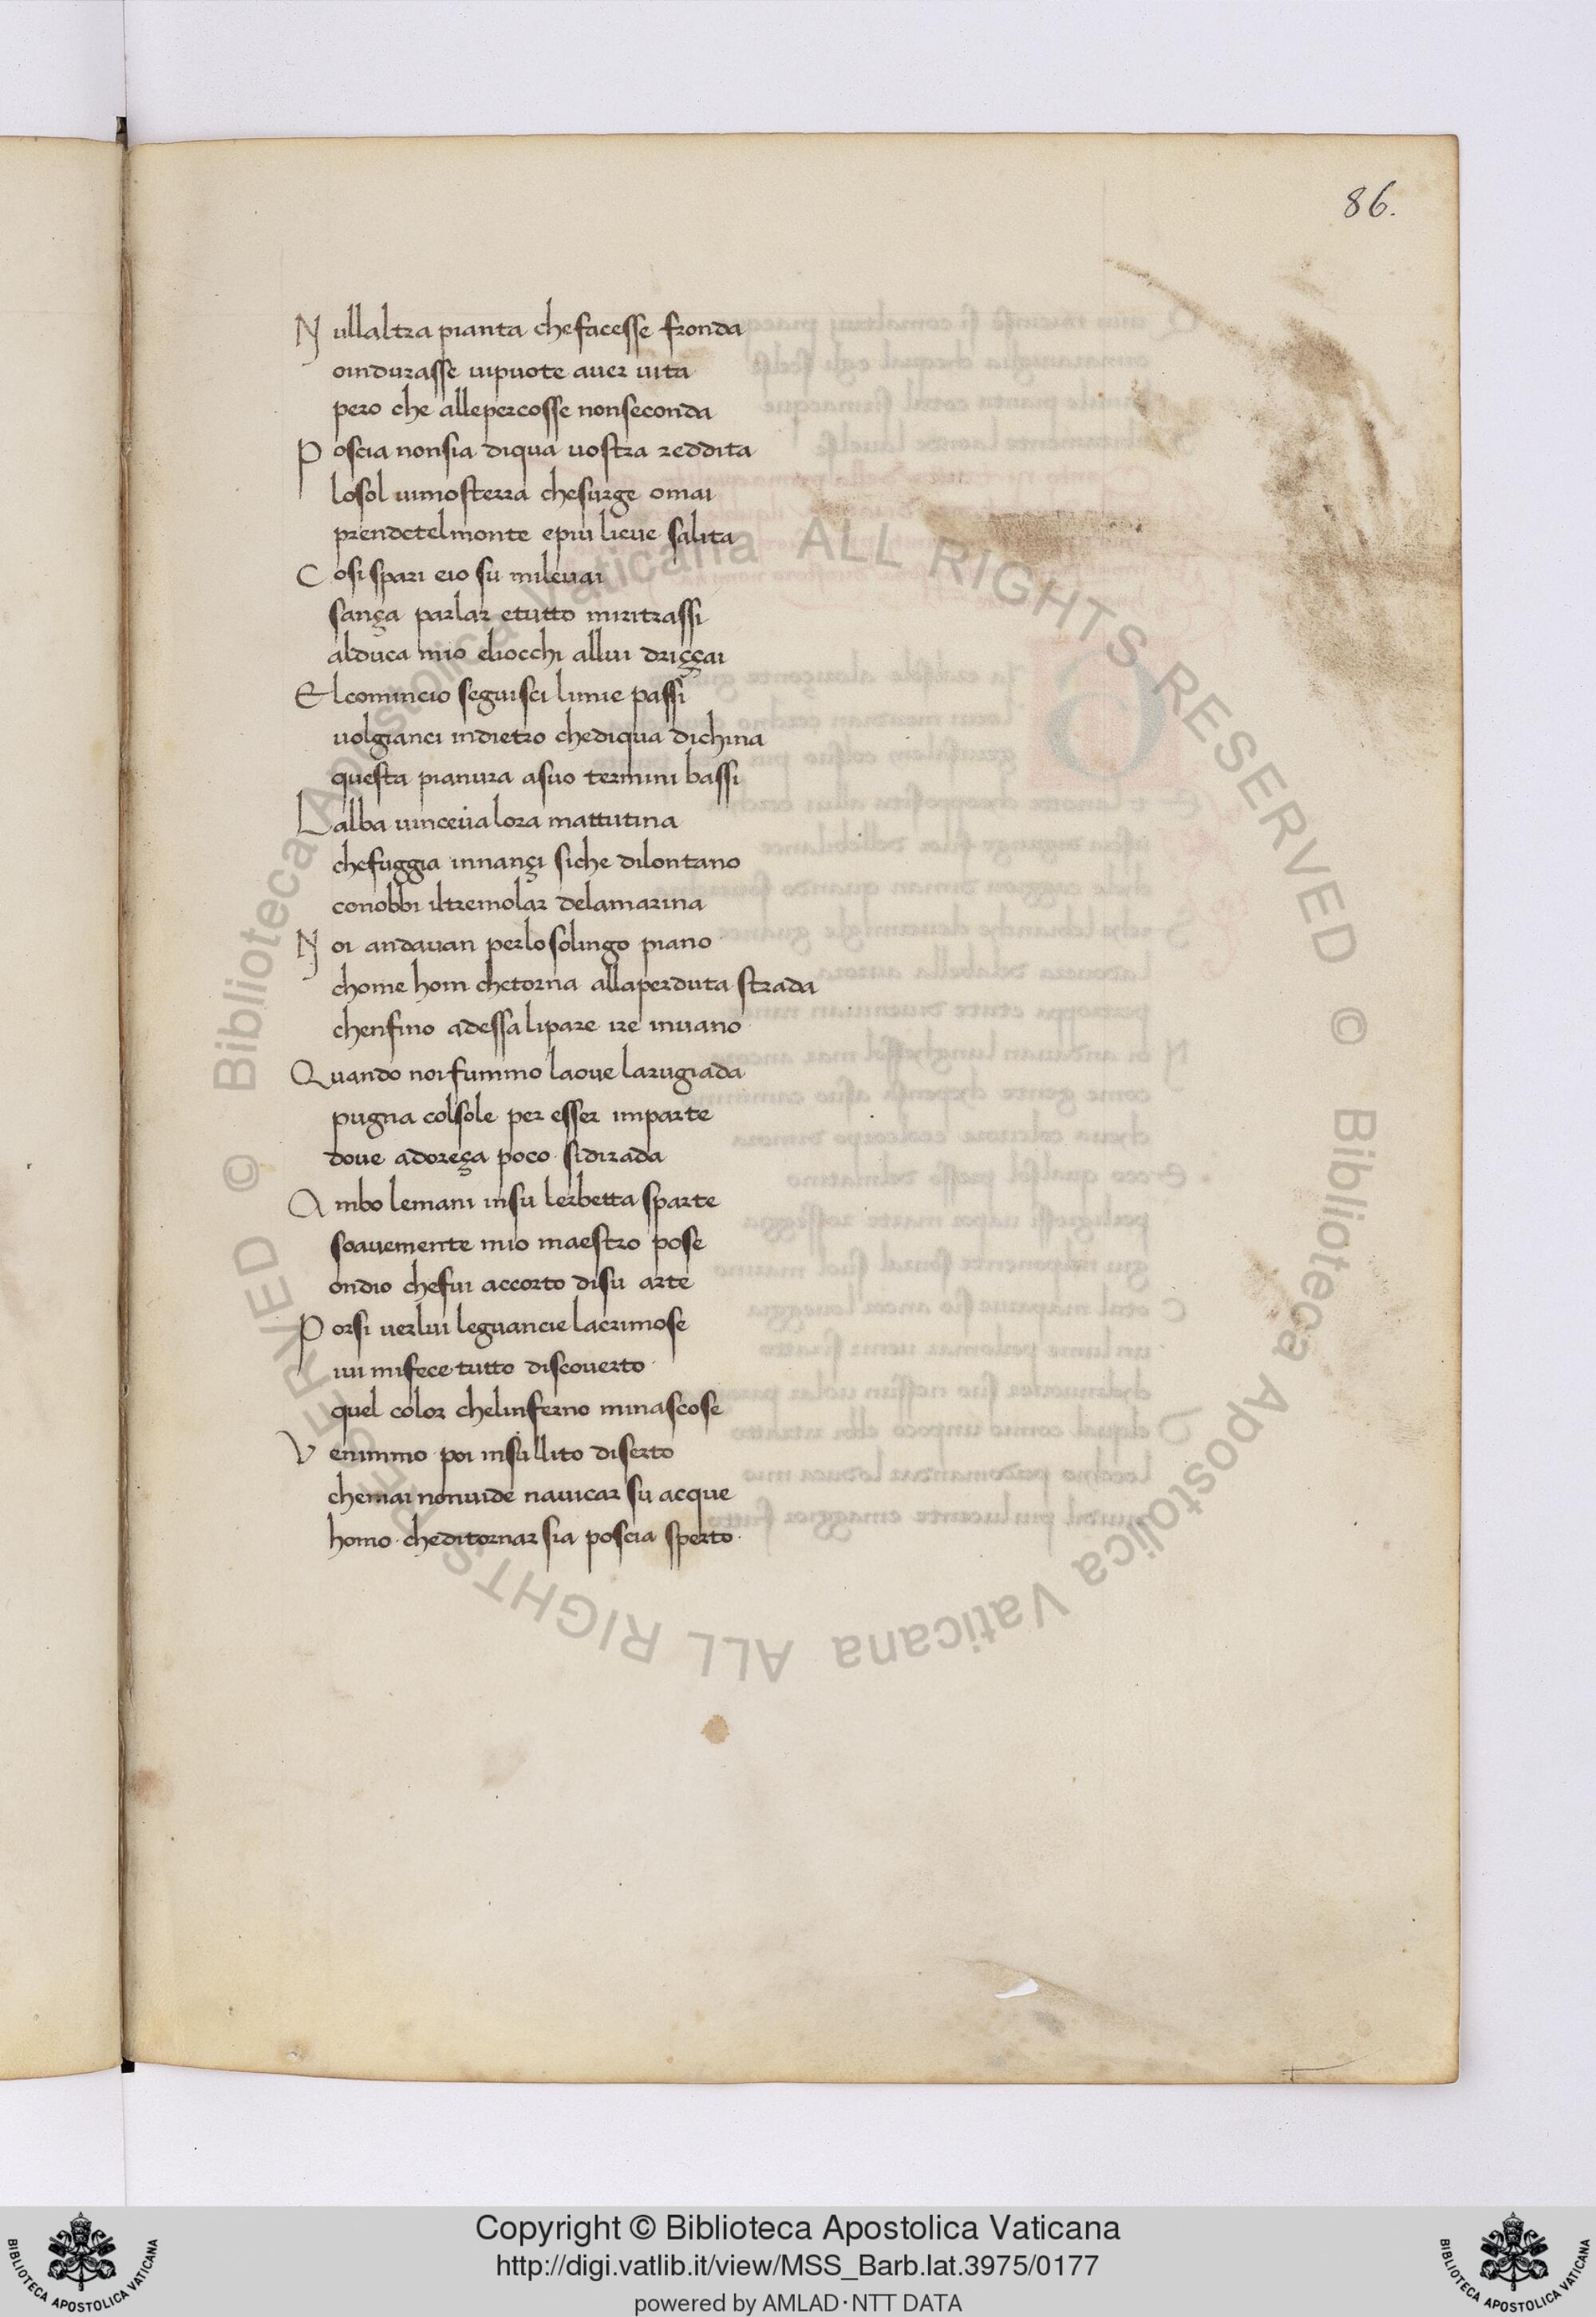 86.
Nullaltra pianta chefacesse fronda
oindurasse uipuote auer uita
pero che allepercosse nonseconda
Poscia nonsia diqua uostra reddita
losol uimosterra chesurge omai
prendetelmonte epiu lieue salita
Cosi spari eio su mileuai
sança parlar etutto miritrassi
alduca mio eliocchi allui driççai
Elcomincio seguisci limie passi
uolgianci indietro chediqua dichina
questa pianura asuo termini bassi
Lalba uinceua lora mattutina
chefuggia innançi siche dilontano
conobbi iltremolar delamarina
Noi andauan perlo solingo piano
chome hom chetorna allaperduta strada
chenfino adessa lipare ire inuano
Quando noi fummo laoue larugiada
pugna colsole per esser imparte
doue adoreça poco sidirada
Ambo lemani insu lerbetta sparte
soauemente mio maestro pose
ondio chefui accorto disu arte
Porsi uerlui leguancie lacrimose
iui mifece tutto discouerto
quel color chelinferno minascose
Venimmo poi insullito diserto
chemai nonuide nauicar su acque
homo cheditornar sia poscia sperto
© Biblioteca Apostolica Vaticana ALL RIGHTS RESERVED © Biblioteca Apostolica Vaticana ALL RIGHTS RESERVED
BIBLIOTECA APOSTOLICA VATICANA
Copyright © Biblioteca Apostolica Vaticana
http://digi.vatlib.it/view/MSS_Barb.lat.3975/0177
powered by AMLAD·NTT DATA
BIBLIOTECA APOSTOLICA VATICANA